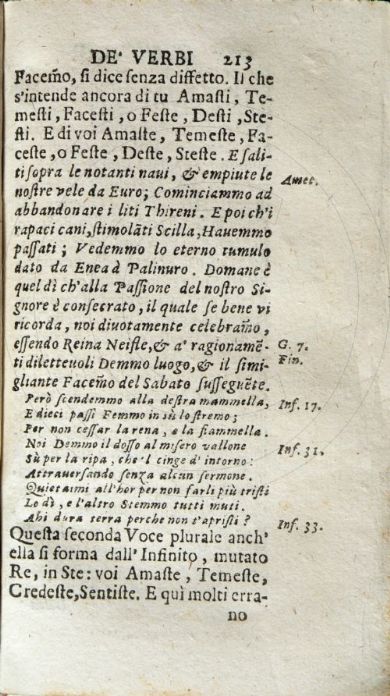 DE' VERBI 213
Facem̃o, si dice senza diffetto. Il che
s'intende ancora di tu Amasti, Te-
mesti, Facesti, o Feste, Desti, Ste-
sti. E di voi Amaste, Temeste, Fa-
ceste, o Feste, Deste, Steste. E sali-
ti sopra le notanti naui, & empiute le
nostre vele da Euro; Cominciammo ad
Amet.
abbandonare i liti Thireni. E poi ch'i
rapaci cani, stimolãti Scilla, Hauemmo
passati; Vedemmo lo eterno tumulo
dato da Enea à Palinuro. Domane è
quel dì ch'alla Passione del nostro Si-
gnore è consecrato, il quale se bene vi
ricorda, noi diuotamente celebram̃o,
essendo Reina Neifile, & a' ragionamẽ-
G. 7.
ti diletteuoli Demmo luogo, & il simi-
Fin.
gliante Facem̃o del Sabato susseguẽte.
Però scendemmo alla destra mammella,
Inf. 17.
E dieci passi Femmo in sù lo stremo;
Per non cessar la rena, e la fiammella.
Noi Demmo il dosso al misero vallone
Inf. 31.
Sù per la ripa, che'l cinge d'intorno:
Attrauersando senza alcun sermone.
Quietaimi all'hor per non farli più tristi
Lo dì, e l'altro Stemmo tutti muti.
Ahi dura terra perche non t'apristi?
Inf. 33.
Questa seconda Voce plurale anch'
ella si forma dall' Infinito, mutato
Re, in Ste: voi Amaste, Temeste,
Credeste, Sentiste. E quì molti erra-
no